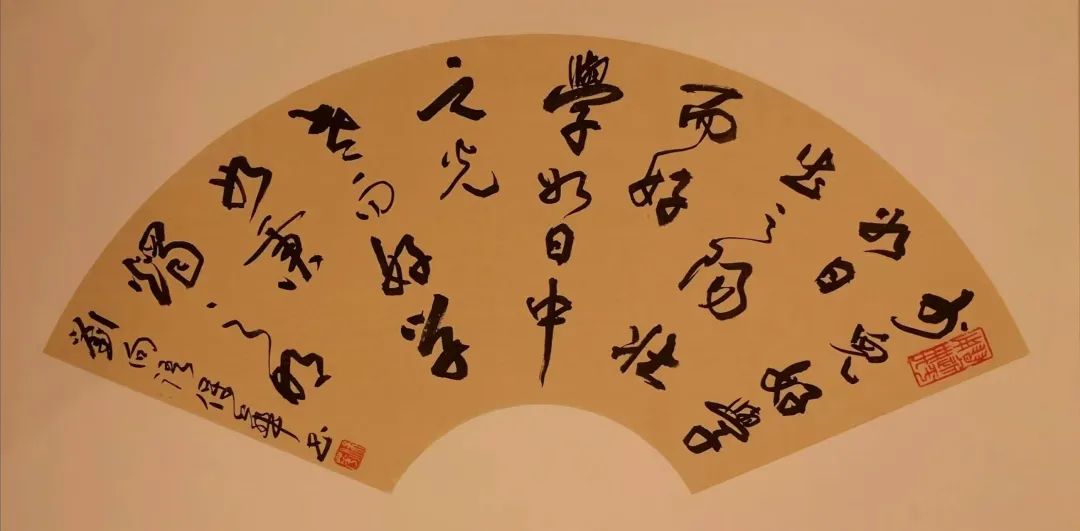 少而好學
如日
出之陽壯
而好
學如日中
之光
老而好学
如秉
燭之明
劉向